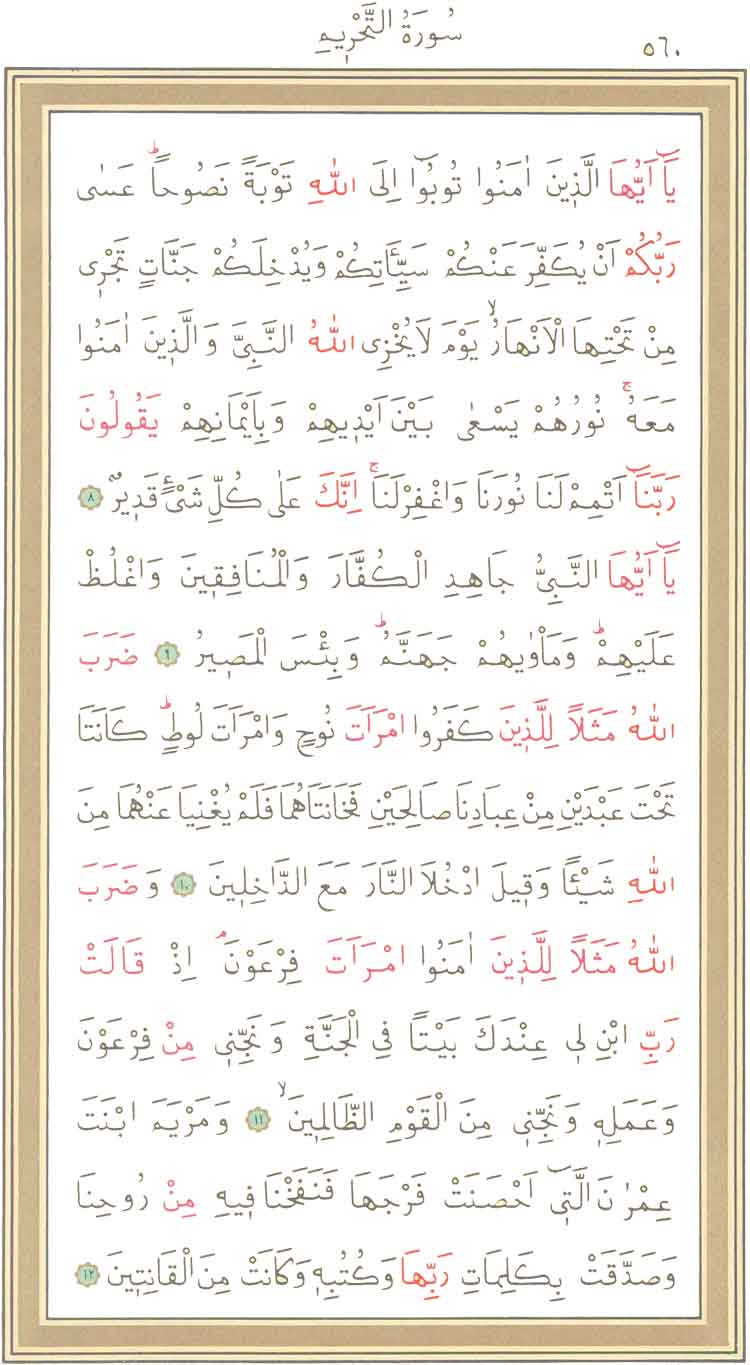 سُورَةُ التَّحْرِيمِ
٥٦٠
يَٓا اَيُّهَا الَّذ۪ينَ اٰمَنُوا تُوبُٓوا اِلَى اللّٰهِ تَوْبَةً نَصُوحاًۜ عَسٰى
رَبُّكُمْ اَنْ يُكَفِّرَ عَنْكُمْ سَيِّـَٔاتِكُمْ وَيُدْخِلَكُمْ جَنَّاتٍ تَجْر۪ى
مِنْ تَحْتِهَا الْاَنْهَارُۙ يَوْمَ لَا يُخْزِى اللّٰهُ النَّبِىَّ وَالَّذ۪ينَ اٰمَنُوا
مَعَهُۚ نُورُهُمْ يَسْعٰى بَيْنَ اَيْد۪يهِمْ وَبِاَيْمَانِهِمْ يَقُولُونَ
رَبَّنَٓا اَتْمِمْ لَنَا نُورَنَا وَاغْفِرْ لَنَاۚ اِنَّكَ عَلٰى كُلِّ شَىْءٍ قَد۪يرٌ ﴿٨﴾
يَٓا اَيُّهَا النَّبِىُّ جَاهِدِ الْكُفَّارَ وَالْمُنَافِق۪ينَ وَاغْلُظْ
عَلَيْهِمْۜ وَمَأْوٰيهُمْ جَهَنَّمُۜ وَبِئْسَ الْمَص۪يرُ ﴿٩﴾ ضَرَبَ
اللّٰهُ مَثَلاً لِلَّذ۪ينَ كَفَرُوا امْرَاَتَ نُوحٍ وَامْرَاَتَ لُوطٍۜ كَانَتَا
تَحْتَ عَبْدَيْنِ مِنْ عِبَادِنَا صَالِحَيْنِ فَخَانَتَاهُمَا فَلَمْ يُغْنِيَا عَنْهُمَا مِنَ
اللّٰهِ شَيْـًٔا وَق۪يلَ ادْخُلَا النَّارَ مَعَ الدَّاخِل۪ينَ ﴿١٠﴾ وَضَرَبَ
اللّٰهُ مَثَلاً لِلَّذ۪ينَ اٰمَنُوا امْرَاَتَ فِرْعَوْنَۢ اِذْ قَالَتْ
رَبِّ ابْنِ ل۪ى عِنْدَكَ بَيْتًا فِى الْجَنَّةِ وَنَجِّن۪ى مِنْ فِرْعَوْنَ
وَعَمَلِه۪ وَنَجِّن۪ى مِنَ الْقَوْمِ الظَّالِم۪ينَۙ ﴿١١﴾ وَمَرْيَمَ ابْنَتَ
عِمْرٰنَ الَّت۪ٓى اَحْصَنَتْ فَرْجَهَا فَنَفَخْنَا ف۪يهِ مِنْ رُوحِنَا
وَصَدَّقَتْ بِكَلِمَاتِ رَبِّهَا وَكُتُبِه۪ وَكَانَتْ مِنَ الْقَانِت۪ينَ ﴿١٢﴾